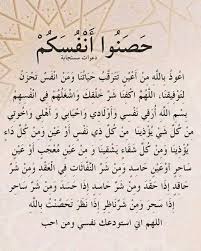 حَصِّنُوا أَنْفُسَكُمْ
دعوات مستجابة
اعوذ بالله من أعين تترقب حياتنا ومن انفس تحزن
لتوفيقنا، اللهم اكفنا شر خلقك واشغلهم في انفسهم
بسم الله أرقي نفسي وأولادي واحبابي و أهلي واخوتي
من كل شيء يؤذينا من كل شر يؤذينا ومن كل داء
يؤذينا ومن كل شقاء يشقينا و من عين معجب أو عين
ساحر أو عين حاسد و من شر النفاثات في العقد ومن شر
حاقد إذا حقد ومن شر حاسد إذا حسد ومن شر ساحر
إذا سحر ومن شر ناظر إذا نظر تحصنت بالله
اللهم اني استودعك نفسي ومن احب